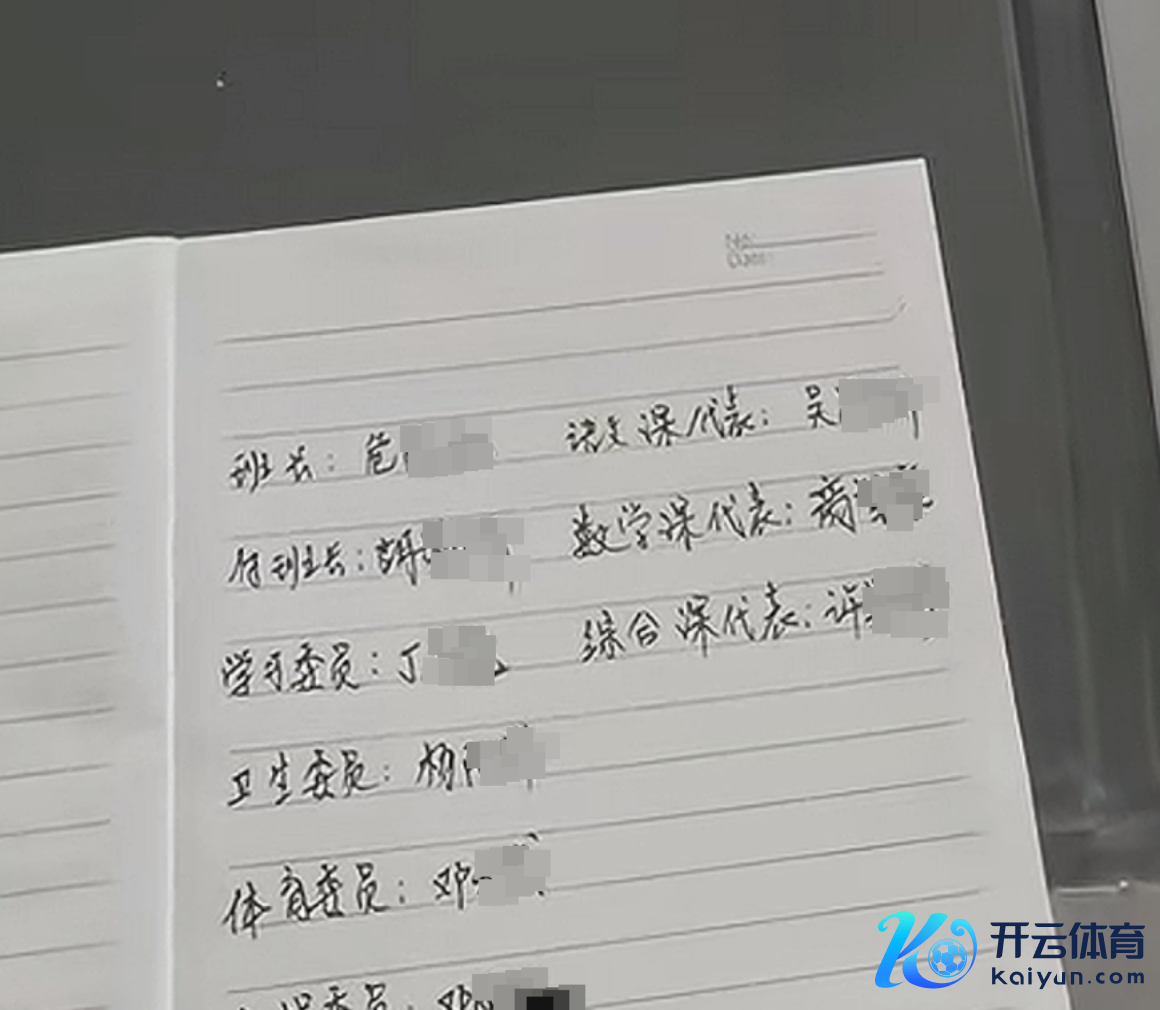 No:
Date:
班长：危 语文课代表：吴
付班长：胡 数学课代表：商
学习委员：丁 综合课代表：许
卫生委员：杨
体育委员：邓
委员：邓
开云体育
kaiyun.com